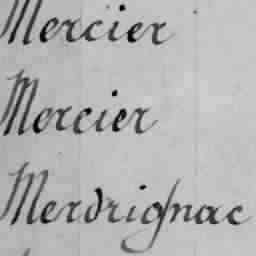 Mercier
Mercier
Merdrignac